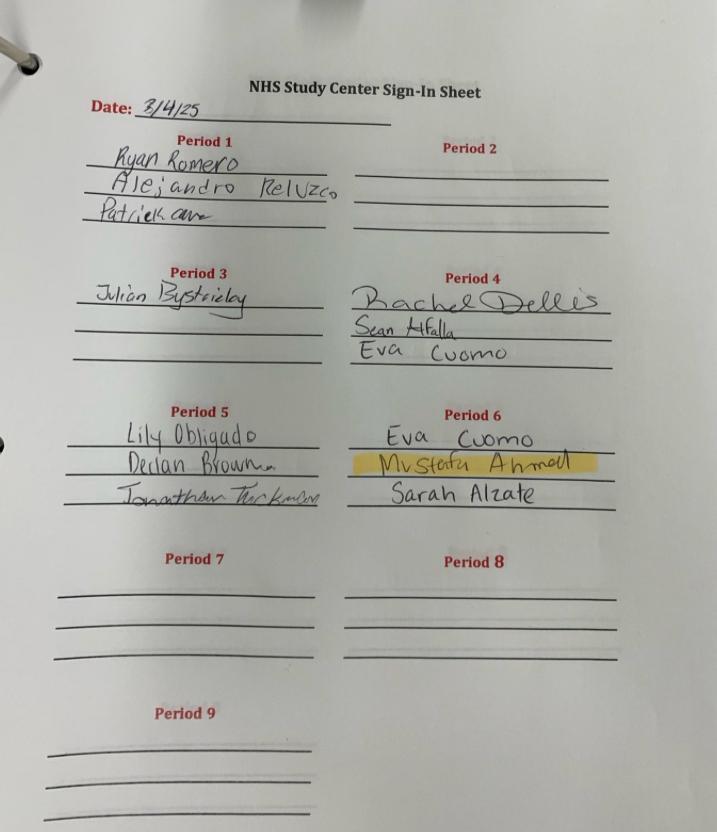 NHS Study Center Sign-In Sheet
Date: 3/4/25
Period 1
Ryan Romero
Alejandro Reluzco
Patrick
Period 2
Period 3
Julian
Period 4
Rachel Dellis
Sean Alfalla
Eva Cuomo
Period 5
Lily Obligado
Declan Browne
Jonathan
Period 6
Eva Cuomo
Mustafa Ahmed
Sarah Alzate
Period 7
Period 8
Period 9